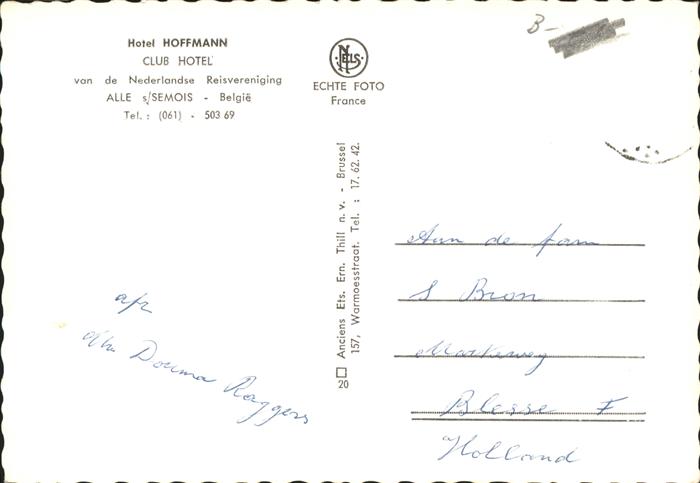 Hotel HOFFMANN
CLUB HOTEL
van de Nederlandse Reisvereniging
ALLE s/SEMOIS - België
Tel.: (061) - 503 69
NELS
ECHTE FOTO
France
B-
Anciens Ets. Ern. Thill n.v. - Brussel
157, Warmoesstraat. Tel. : 17.62.42.
20
afz
Douma Raggers
Aan de fam
S Bron
Blesse F
Holland